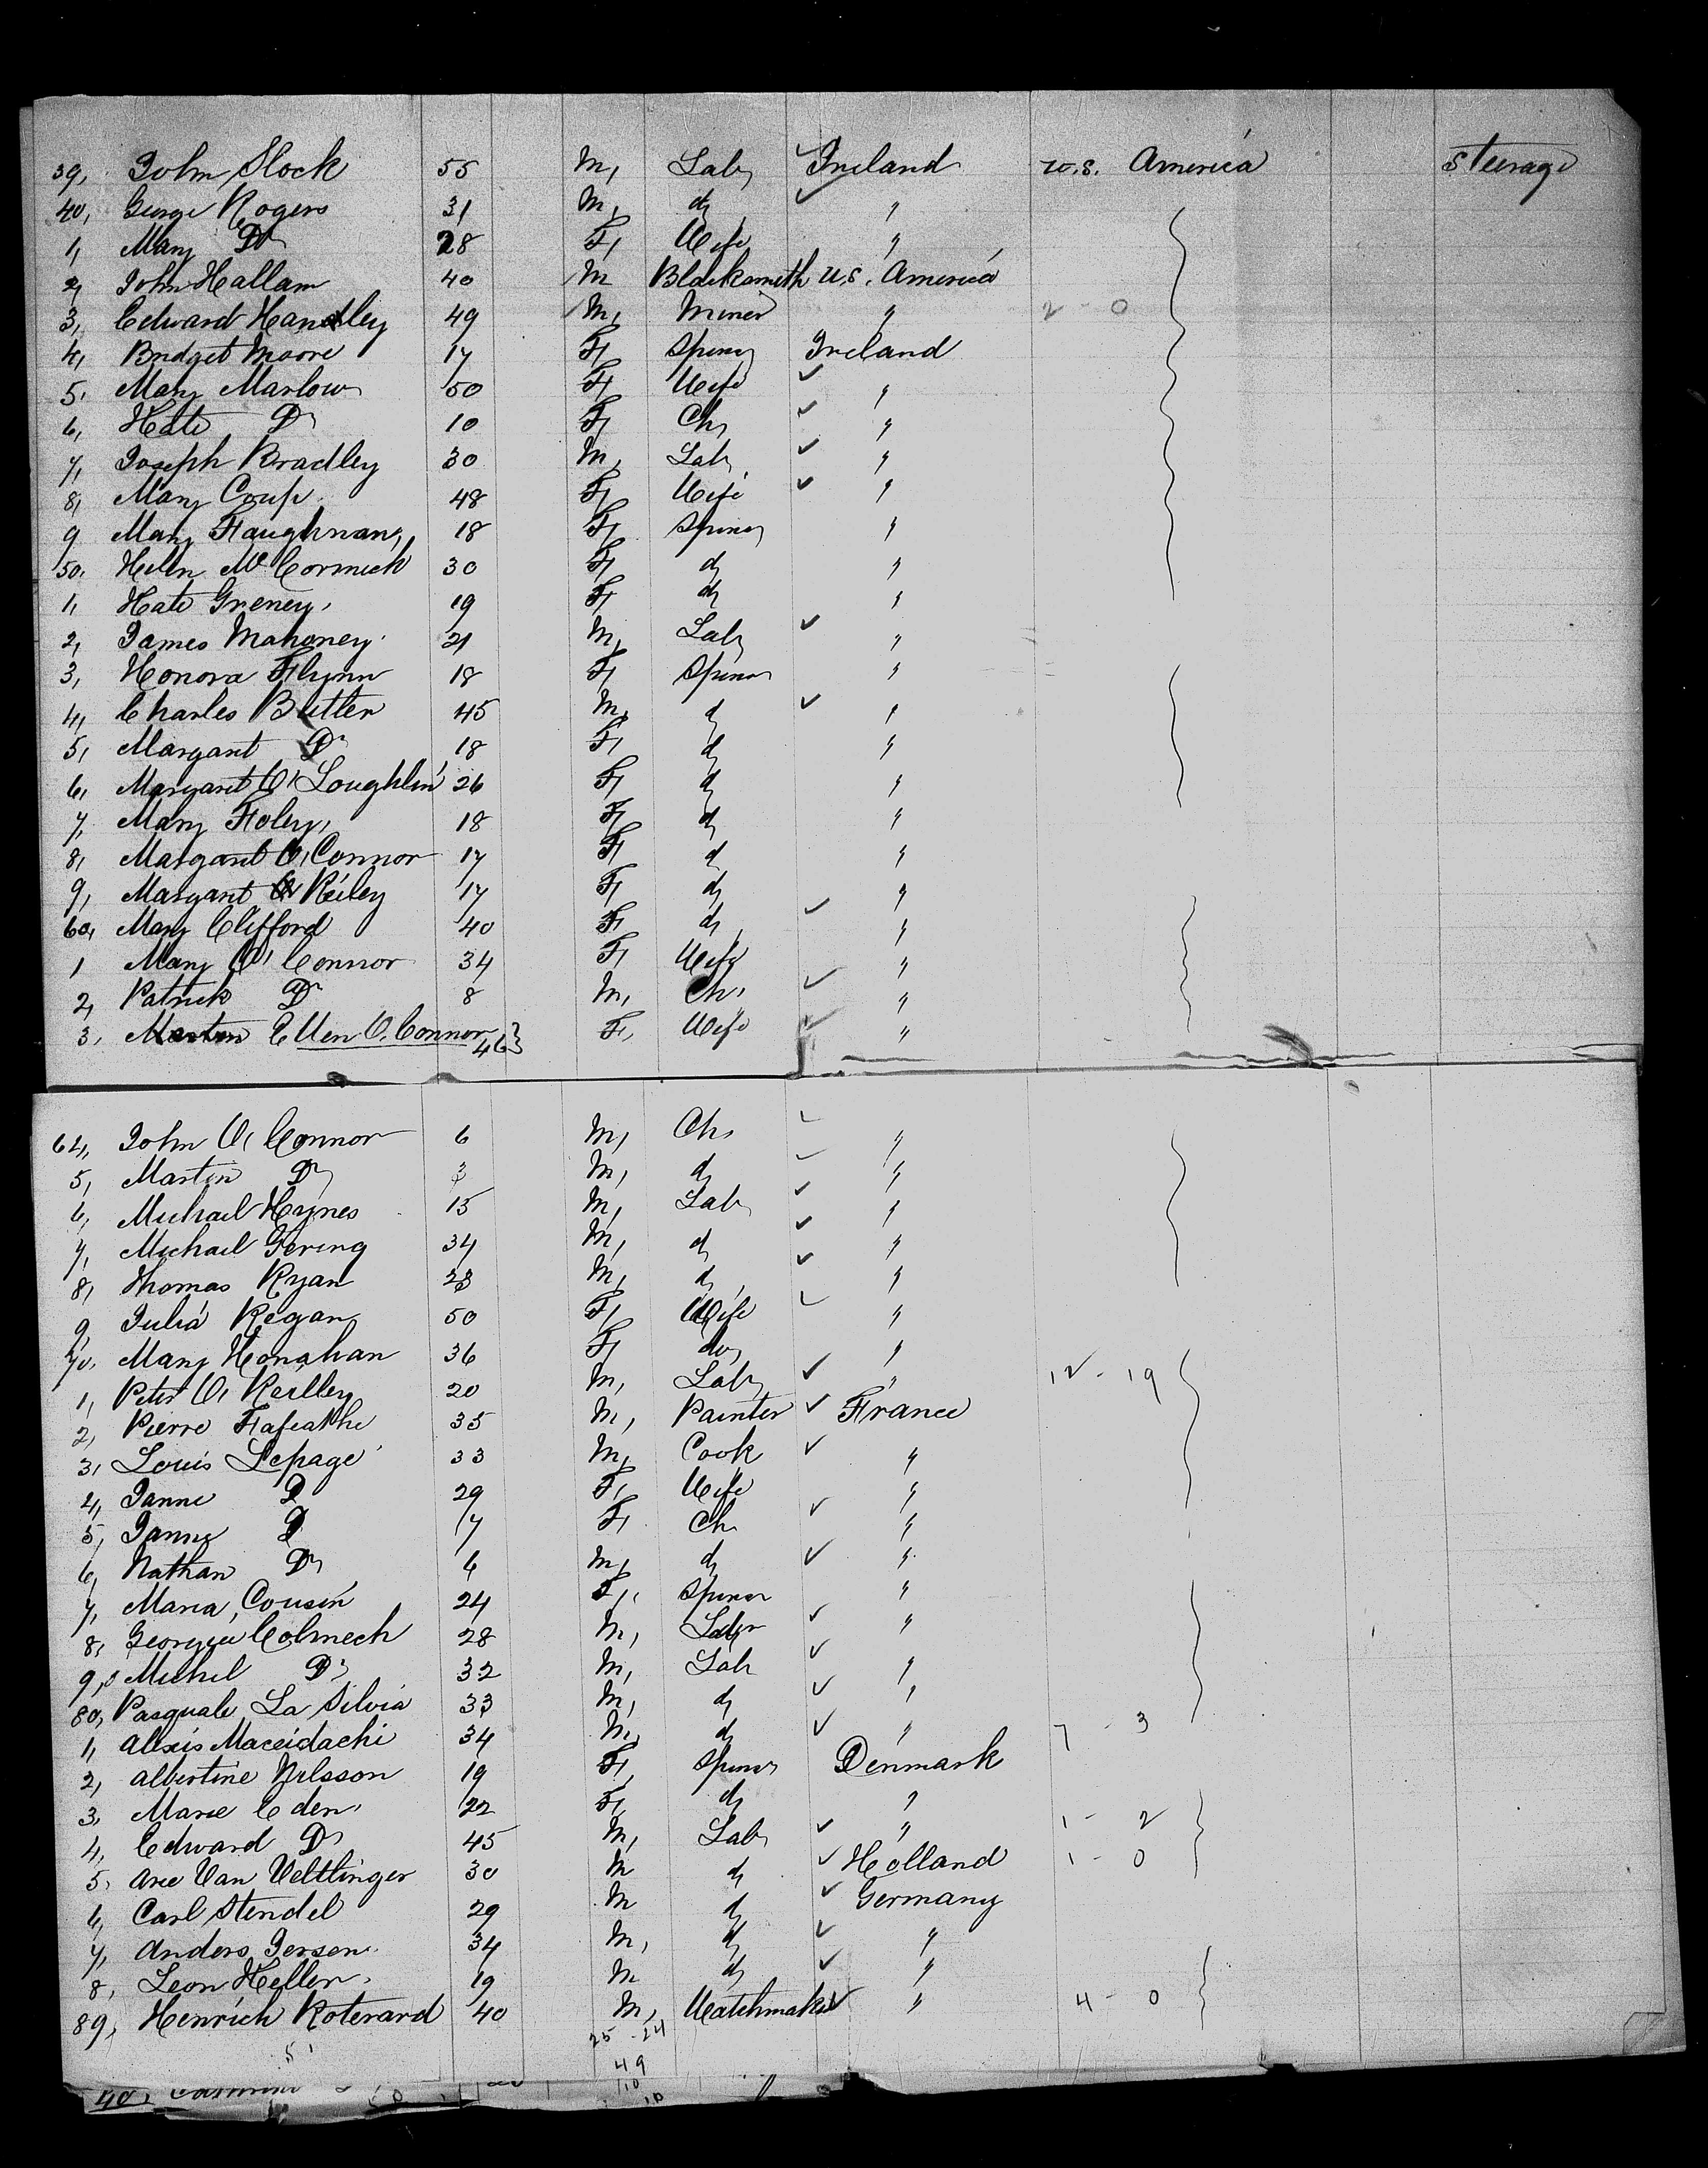 39, John Slock 55 M, Lab, Ireland U.S. America Steerage
40, George Rogers 31 M, do "
1, Mary Do 28 F, Wife "
2, John Hallam 40 M Blacksmith U.S. America
3, Edward Handley 49 M, Miner " 2 - 0
4, Bridget Moore 17 F, Spins Ireland
5, Mary Marlow 50 F, Wife "
6, Kate Do 10 F, Ch, "
7, Joseph Bradley 30 M, Lab, "
8, Mary Coup 48 F, Wife "
9 Mary Faughnan, 18 F, Spins "
50, Helen McCormick 30 F, do "
1, Kate Greney, 19 F, do "
2, James Mahoney 21 M, Lab, "
3, Honora Flynn 18 F, Spins "
4, Charles Butler 45 M, do "
5, Margaret Do 18 F, do "
6, Margaret O'Loughlin 26 F, do "
7, Mary Foley, 18 F, do "
8, Margaret O'Connor 17 F, do "
9, Margaret O'Reiley 17 F, do "
60, Mary Clifford 40 F, do "
1 Mary O'Connor 34 F, Wife "
2, Patrick Do 8 M, Ch, "
3, Martin Ellen O'Connor 46 F, Wife "
64, John O'Connor 6 M, Ch, "
5, Martin Do 3 M, do "
6, Michael Hynes 15 M, Lab, "
7, Michael Gering 34 M, do "
8, Thomas Ryan 23 M, do "
9, Julia Regan 50 F, Wife "
70, Mary Honahan 36 F, do, "
1, Peter O'Reilley 20 M, Lab, " 12 - 19
2, Pierre 35 M, Painter France
3, Louis Lepage 33 M, Cook "
4, Janne D 29 F, Wife "
5, Janne D 7 F, Ch "
6, Nathan Do 6 M, do "
7, Maria Cousin 24 F, Spins "
8, Colmech 28 M, Labr "
9, Michel Do 32 M, Lab "
80, Pasquale La Silvia 33 M, do "
1, Alexis Maceidachi 34 M, do " 7 - 3
2, Albertine Nilsson 19 F, Spins Denmark
3, Marie Eden, 22 F, do "
4, Edward Do 45 M, Lab, " 1 - 2
5, Arie Van Veltlinger 30 M do Holland 1 - 0
6, Carl Stendel 29 M do Germany
7, Anders Jersen 34 M, do "
8, Leon Heller, 19 M do "
89, Henrich Roterard 40 M, Watchmaker " 4 - 0
25 - 24
51
49
10
40,
10